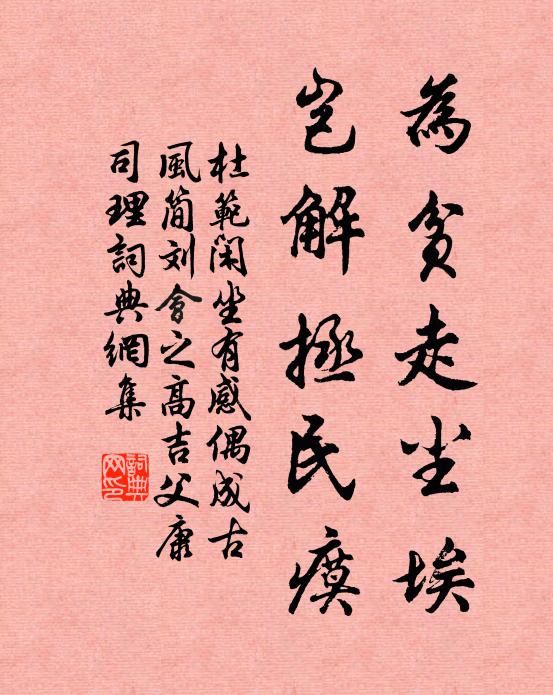 為貧走尘埃
岂解拯民瘼
杜範閑坐有感偶成古
風簡刘會之高吉父康
司理詞典網集
詞典网印